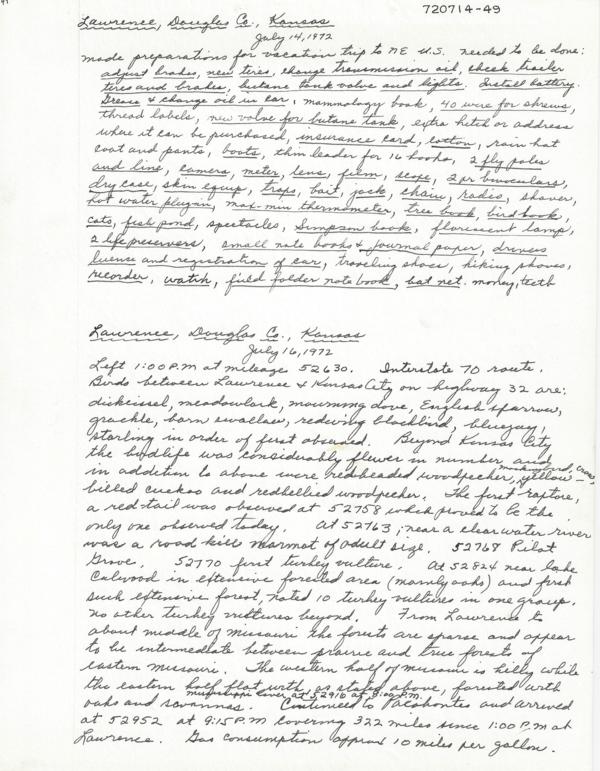 720714-49
Lawrence, Douglas Co., Kansas
July 14, 1972
made preparations for vacation trip to NE U.S. needed to be done:
adjust brakes, new tires, change transmission oil, check trailer
tires and brakes, butane tank valve and lights. Install battery.
Grease & change oil in car, mammalogy book, 40 wire for shrews,
thread labels, new valve for butane tank, extra hitch or address
where it can be purchased, insurance card, cotton, rain hat
coat and pants, boots, thin leader for 16 hooks, 2 fly poles
and line, camera, meter, lens, film, scope, 2 pr binoculars,
dry case, skin equip, traps, bait, jack, chain, radio, shaver,
hot water plugin, max-min thermometer, tree book, bird book,
cots, fish pond, spectacles, Simpson book, florescent lamp,
2 life preservers, small note books & journal paper, drivers
license and registration of car, traveling shoes, hiking shoes,
recorder, watch, field folder notebook, bat net. money, teeth
Lawrence, Douglas Co., Kansas
July 16, 1972
Left 1:00 P.M at mileage 52630. Interstate 70 route.
Birds between Lawrence & Kansas City on highway 32 are:
dickcissel, meadowlark, mourning dove, English sparrow,
grackle, barn swallow, redwing blackbird, bluejay,
starling in order of first observed. Beyond Kansas City
the birdlife was considerably fewer in number and
in addition to above were redheaded woodpecker, mockingbird, crow, yellow-
billed cuckoo and redbellied woodpecker. The first raptore,
a red tail was observed at 52758 which proved to be the
only one observed today. At 52763, near a clear water river
was a road kill marmot of adult size. 52768 Pilot
Grove. 52770 first turkey vulture. At 52824 near
in extensive forested area (mainly oaks) and first
such extensive forest, noted 10 turkey vultures in one group.
No other turkey vultures beyond. From Lawrence to
about middle of Missouri the forests are sparse and appear
to be intermediate between prairie and true forests of
eastern Missouri. The western half of Missouri is hilly while
the eastern half flat with, as stated above, forested with
oaks and savannas. Mississippi River at 52916 at 8:00 P.M. Continued to Pocahontas and arrived
at 52952 at 9:15 P.M covering 322 miles since 1:00 P.M at
Lawrence. Gas consumption approx 10 miles per gallon.